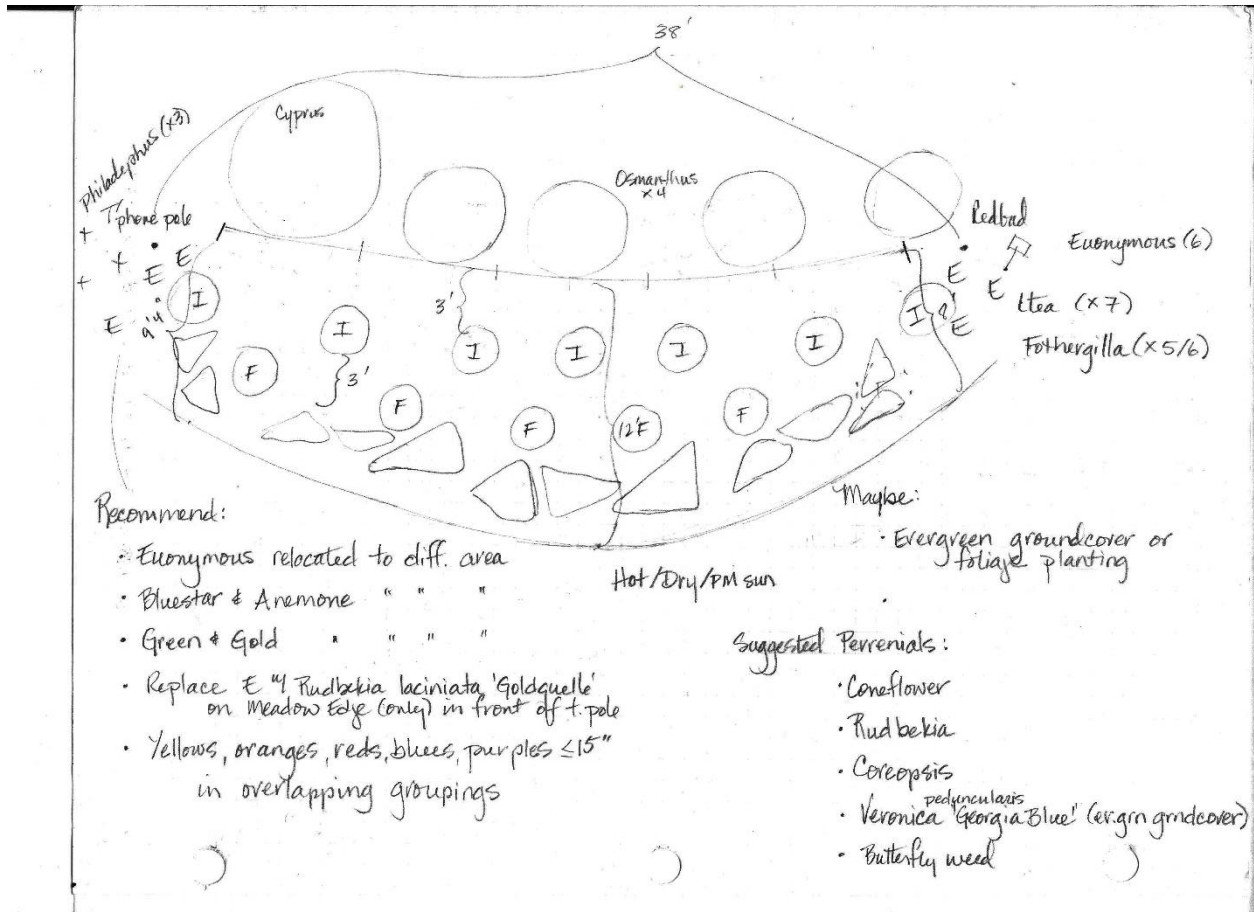 38'
Cyprus
Philadelphus (x3)
T'phone pole
Osmanthus
x4
Redbud
Euonymous (6)
Itea (x7)
Fothergilla (x5/6)
E
E
E
E
E
E
9'4"
3'
8'
I
I
I
I
I
I
I
3'
F
F
F
12'F
F
Recommend:
· Euonymous relocated to diff. area
· Bluestar & Anemone " " "
· Green & Gold " " "
· Replace E w/ Rudbekia laciniata 'Goldquelle'
on Meadow Edge (only) in front of t. pole
· Yellows, oranges, reds, blues, purples ≤15"
in overlapping groupings
Hot/Dry/PM sun
Maybe:
· Evergreen groundcover or
foliage planting
·
Suggested Perrenials:
· Coneflower
· Rudbekia
· Coreopsis
peduncularis
· Veronica 'Georgia Blue' (ev.grn grndcover)
· Butterfly weed